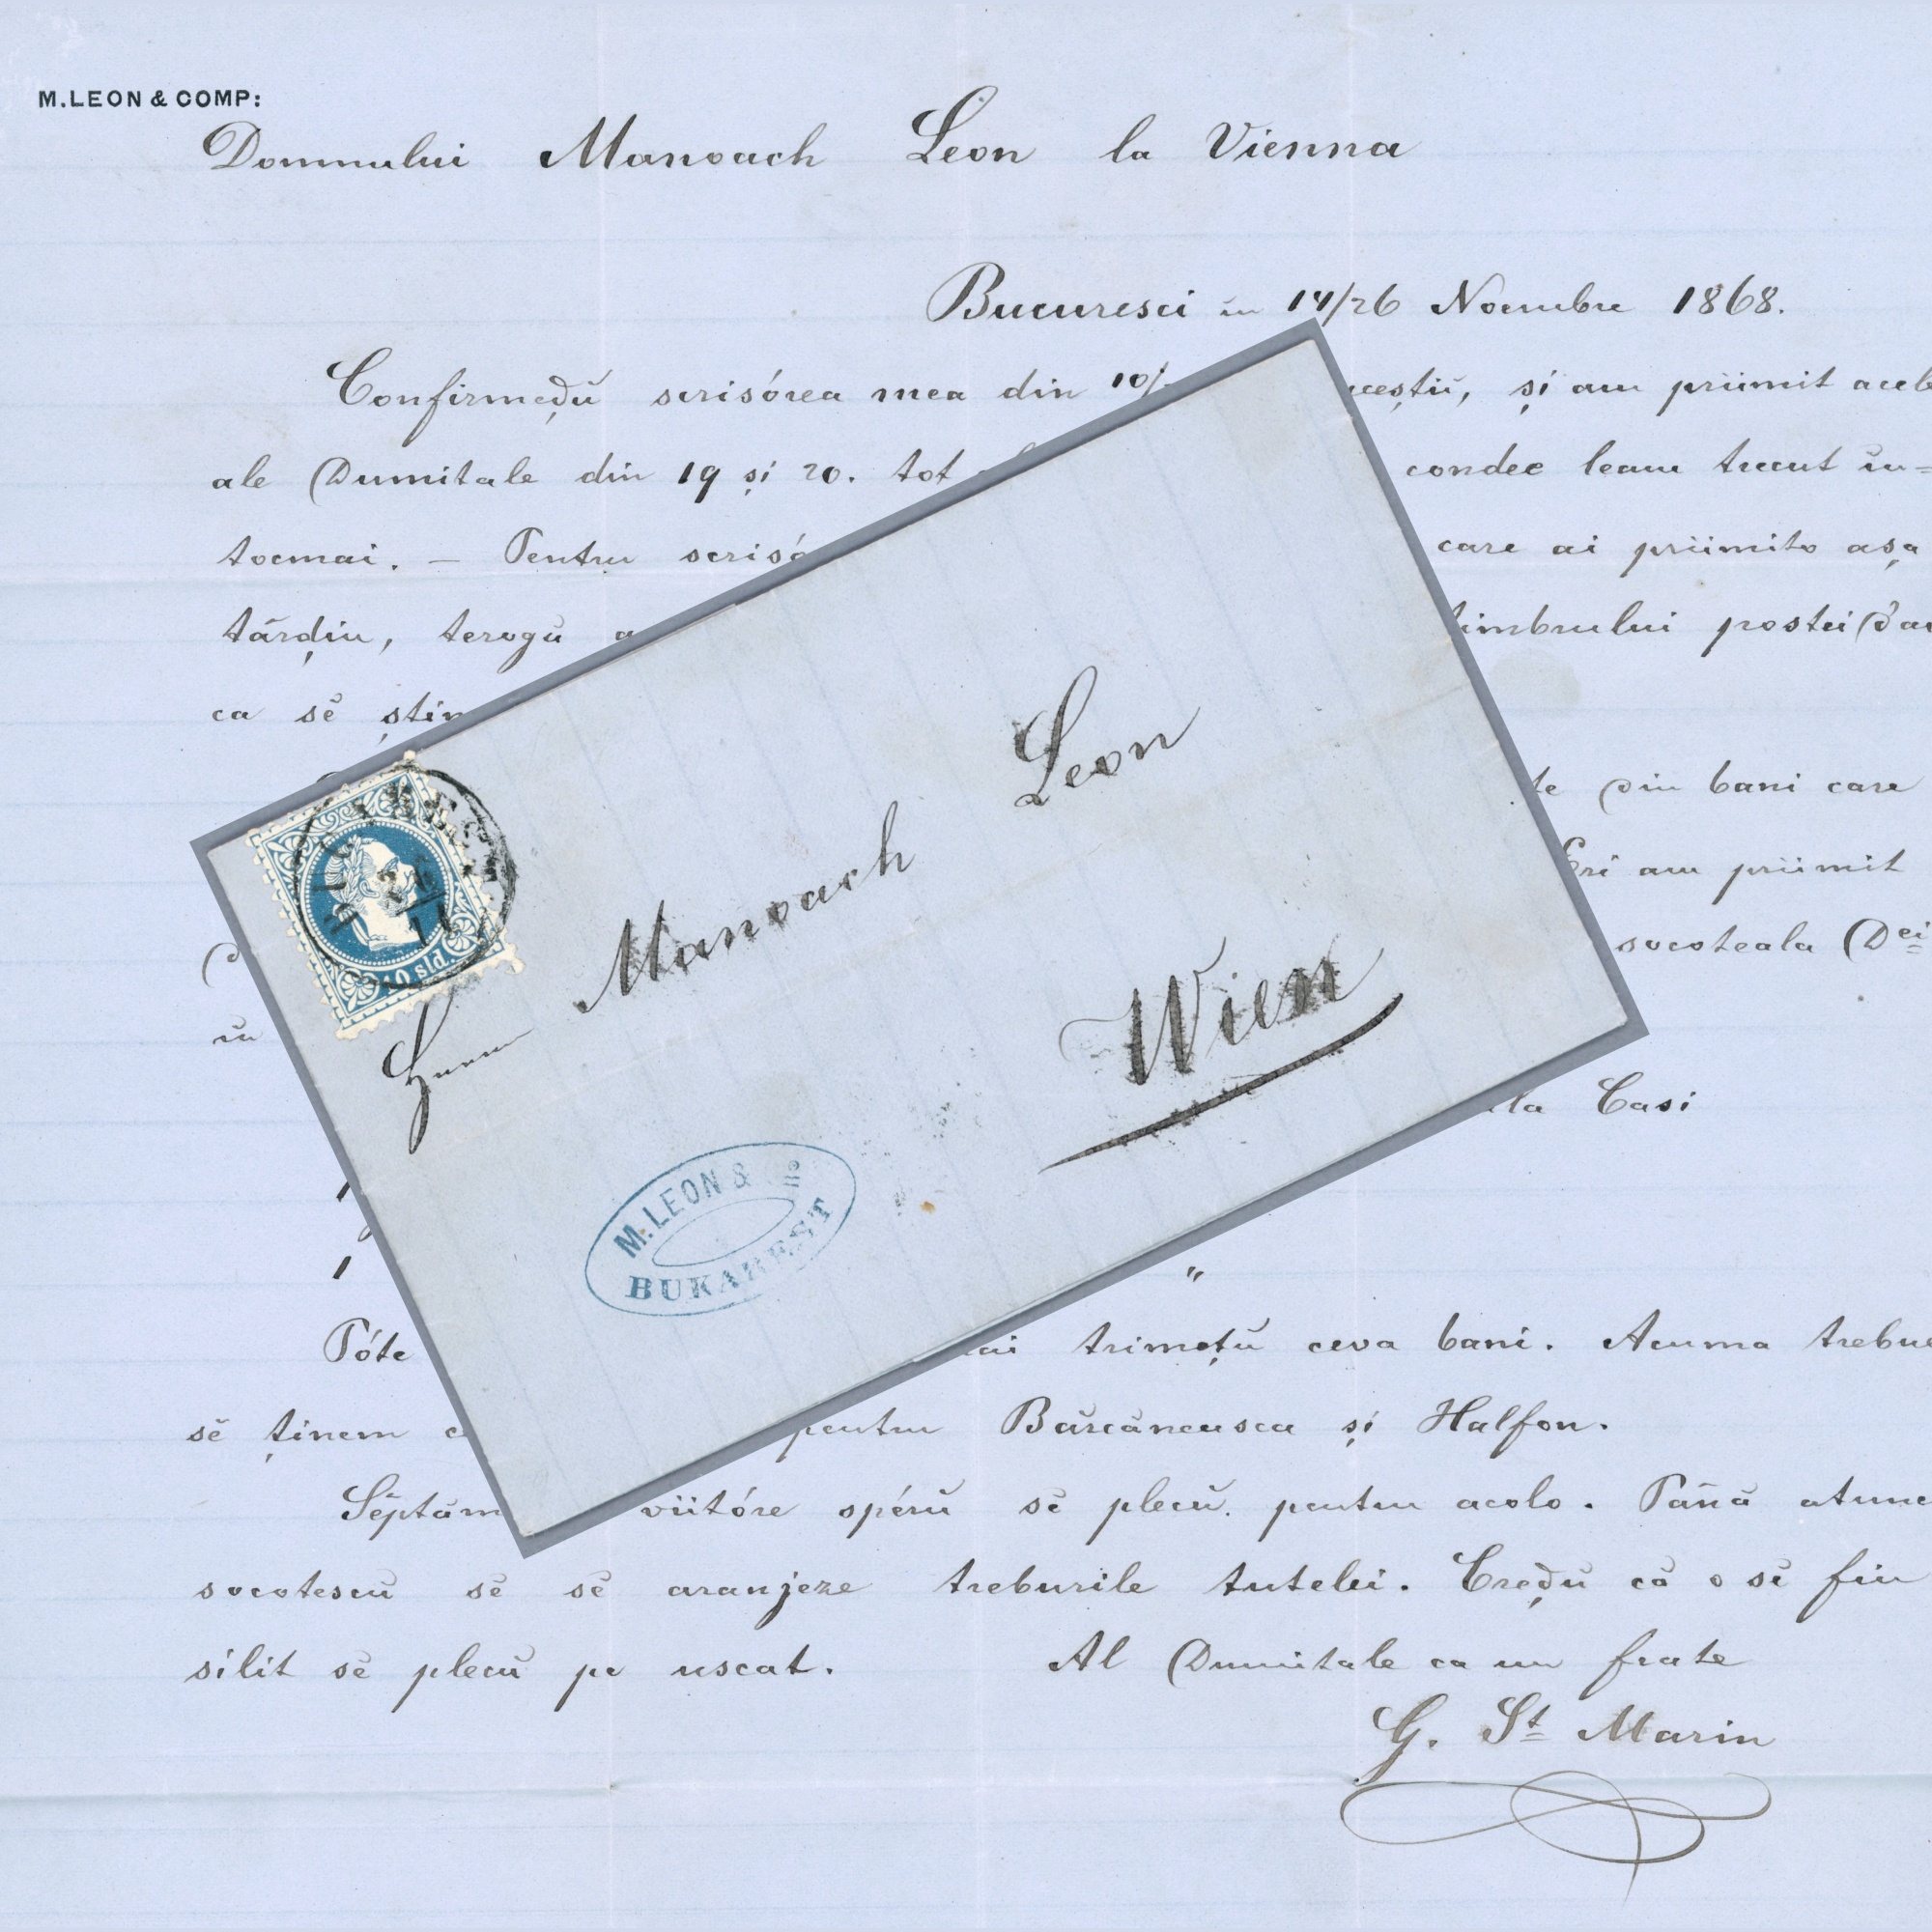 M. LEON & COMP:
Domnului Manoach Leon la Vienna
Bucuresci în 14/26 Noembre 1868.
Confirmeḑŭ scrisórea mea din 10/ și am priimit
ale Dumitale din 19 și 20. tot condee leam trecut în=
tocmai. — Pentru care ai priimito așa
târḑiu, terogu timbrului postei
ca sĕ
din bani care
Eri am priimit
socoteala
în
Casi
1
1 "
Póte trimețŭ ceva bani. Acuma
sĕ ținem pentru Bărcăneasca și Halfon.
viitóre spérŭ sĕ plecŭ pentru acolo. Până
socotescŭ sĕ sĕ aranjeze treburile tutelei. Creḑŭ că o sĕ fiu
silit sĕ plecŭ pe uscat. Al Dumitale ca un frate
G. St Marin
10 sld.
Herrn Manoach Leon
Wien
M. LEON & Co
BUKAREST